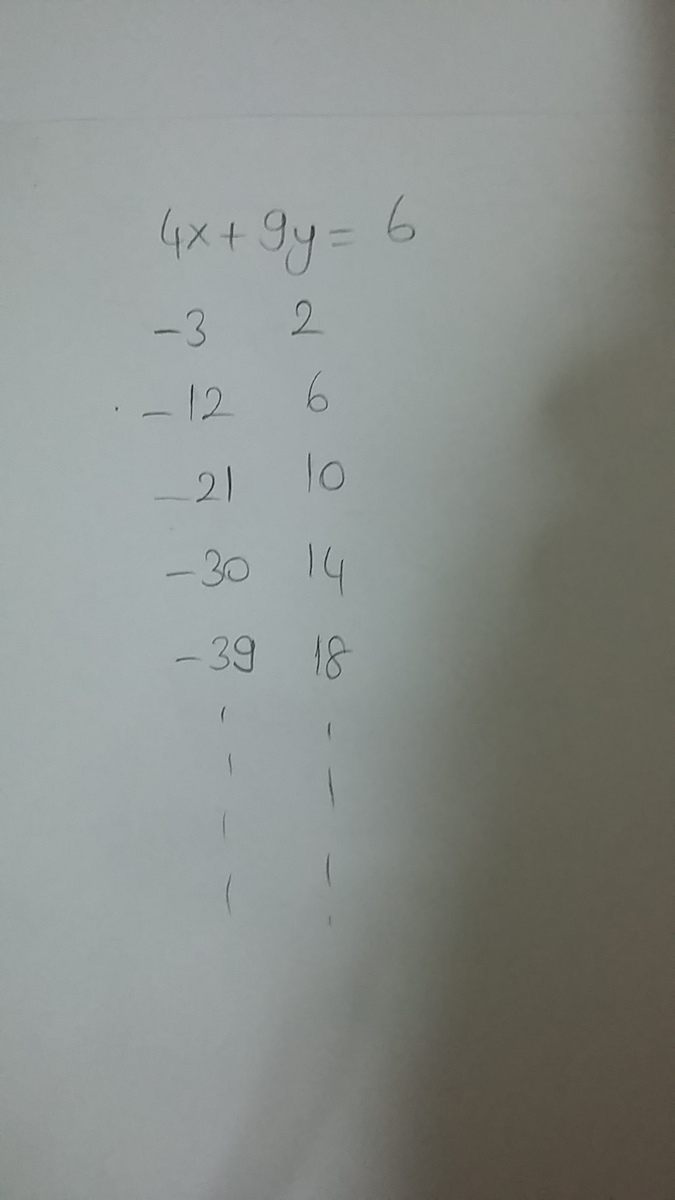 4x + 9y = 6
-3 2
-12 6
-21 10
-30 14
-39 18